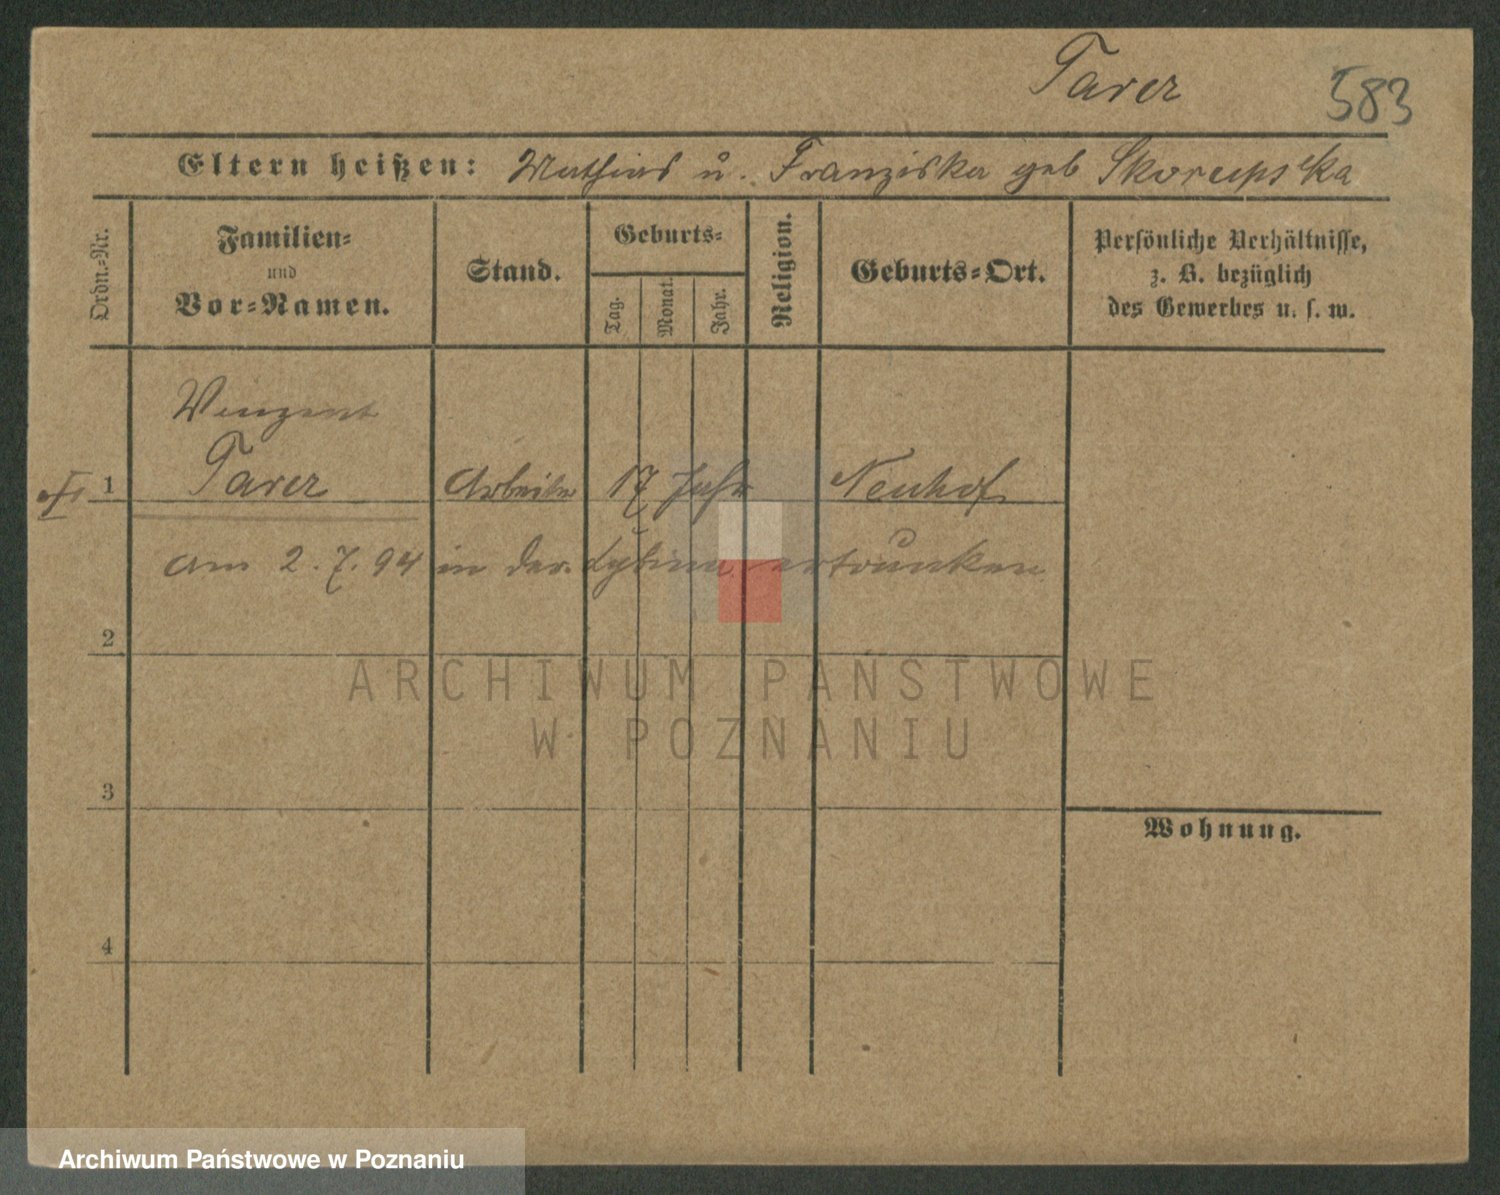 Tarer
583
Eltern heißen: Mathias u. Franziska geb
Ordn.-Nr.
Familien-
und
Vor-Namen.
Stand.
Geburts-
Tag.
Monat.
Jahr.
Religion.
Geburts-Ort.
Persönliche Verhältnisse,
z. B. bezüglich
des Gewerbes u. s. w.
Vinzent
1 Tarer Arbeiter 17 Jahr Neuhof
am 2. 7. 94 in der Cybina ertrunken
2
ARCHIWUM PAŃSTWOWE
W POZNANIU
3
Wohnung.
4
Archiwum Państwowe w Poznaniu